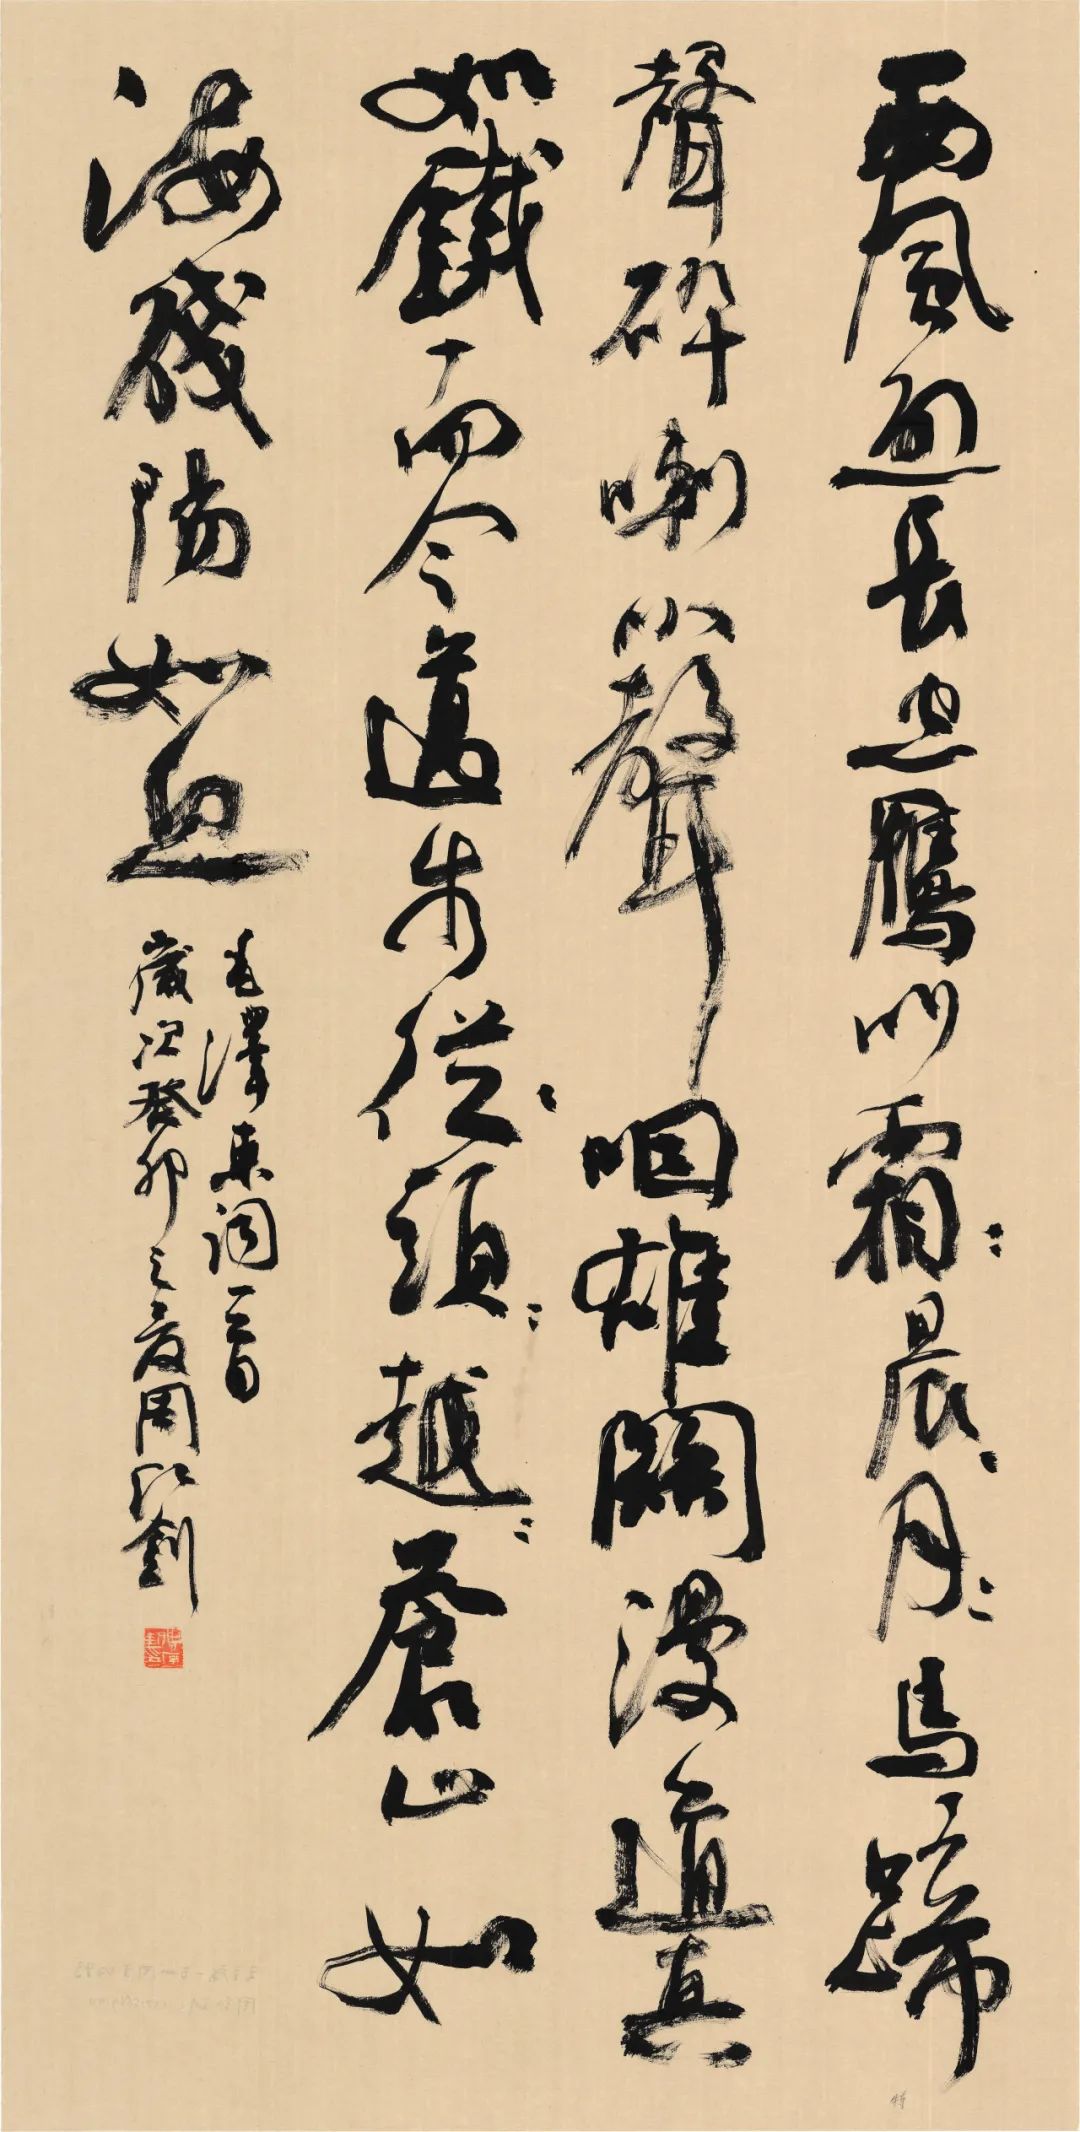 西風烈長空鷹叫霜〻晨〻月〻馬蹄
聲碎喇叭聲咽雄關漫道真
如鐵而今邁步從〻頭〻越〻蒼山如
海殘陽如血
毛澤東詞一首
歲次癸卯之夏周